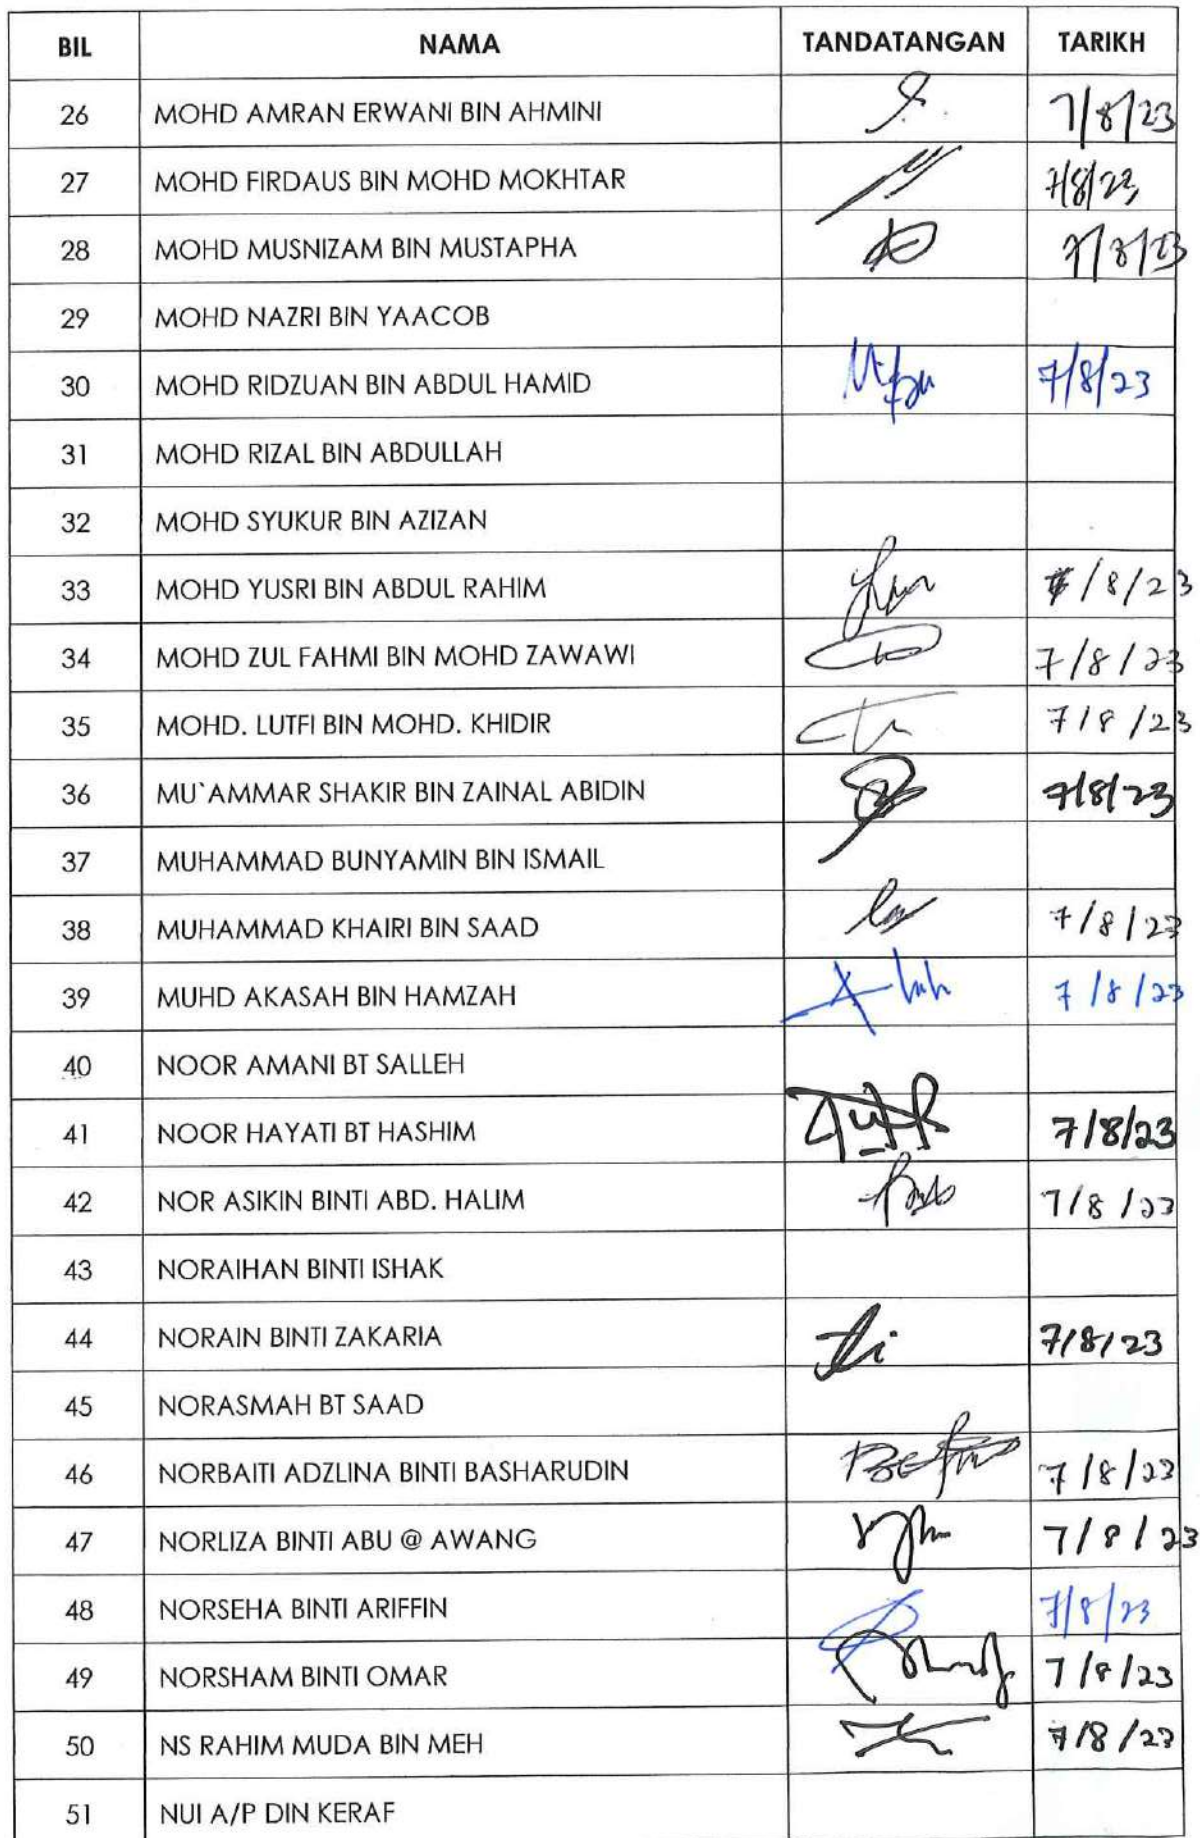 BIL NAMA TANDATANGAN TARIKH
26 MOHD AMRAN ERWANI BIN AHMINI 7/8/23
27 MOHD FIRDAUS BIN MOHD MOKHTAR 7/8/23
28 MOHD MUSNIZAM BIN MUSTAPHA 7/8/23
29 MOHD NAZRI BIN YAACOB
30 MOHD RIDZUAN BIN ABDUL HAMID 7/8/23
31 MOHD RIZAL BIN ABDULLAH
32 MOHD SYUKUR BIN AZIZAN
33 MOHD YUSRI BIN ABDUL RAHIM 7/8/23
34 MOHD ZUL FAHMI BIN MOHD ZAWAWI 7/8/23
35 MOHD. LUTFI BIN MOHD. KHIDIR 7/8/23
36 MU`AMMAR SHAKIR BIN ZAINAL ABIDIN 7/8/23
37 MUHAMMAD BUNYAMIN BIN ISMAIL
38 MUHAMMAD KHAIRI BIN SAAD 7/8/23
39 MUHD AKASAH BIN HAMZAH 7/8/23
40 NOOR AMANI BT SALLEH
41 NOOR HAYATI BT HASHIM 7/8/23
42 NOR ASIKIN BINTI ABD. HALIM 7/8/23
43 NORAIHAN BINTI ISHAK
44 NORAIN BINTI ZAKARIA 7/8/23
45 NORASMAH BT SAAD
46 NORBAITI ADZLINA BINTI BASHARUDIN 7/8/23
47 NORLIZA BINTI ABU @ AWANG 7/8/23
48 NORSEHA BINTI ARIFFIN 7/8/23
49 NORSHAM BINTI OMAR 7/8/23
50 NS RAHIM MUDA BIN MEH 7/8/23
51 NUI A/P DIN KERAF